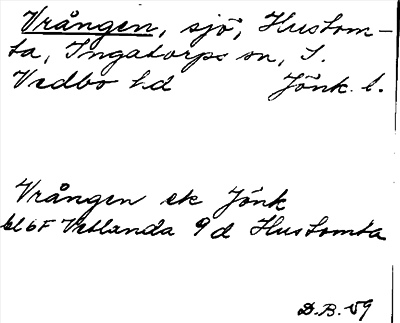 Vrången, sjö, Hustom-
ta, Ingatorps sn, S.
Vedbo hd Jönk. l.
Vrången ek Jönk
bl 6F Vetlanda 9d Hustomta
D.B. 59